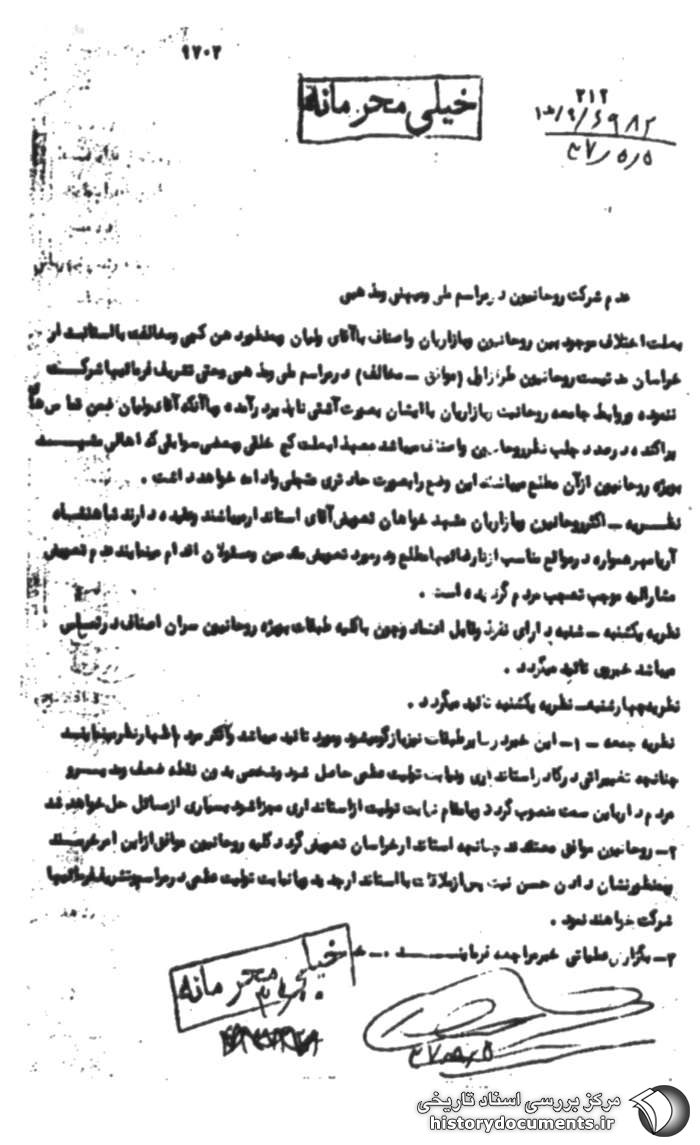 ۹۷۰۲
خیلی محرمانه
۳۱۲
۴۷٫۵٫۵
عدم شرکت روحانیون در مراسم ملی و میهنی و مذهبی
بعلت اختلاف موجود بین روحانیون و بازاریان و اصناف با آقای ولیان و بمنظور دهن کجی و مخالفت با استاندار
خراسان مدتیست روحانیون طراز اول (موافق – مخالف) در مراسم ملی و مذهبی و حتی تشریف فرمائیها شرکت
ننموده و روابط جامعه روحانیت و بازاریان با ایشان بصورت آشتی ناپذیر درآمده و با آنکه آقای ولیان ضمن تماسهای
پراکنده درصدد جلب نظر روحانیون و اصناف میباشد معهذا بعلت کج خلقی و بعضی سوابقی که اهالی مشهد
بویژه روحانیون از آن مطلع میباشند این وضع را بصورت حادتری متجلی و ادامه خواهد داشت .
نظریه – اکثر روحانیون و بازاریان مشهد خواهان تعویض آقای استاندار میباشند و عقیده دارند شاهنشاه
آریامهر همواره در مواقع مناسب از نارضائیها مطلع و در مورد تعویض متصدیان و مسئولان اقدام مینمایند عدم تعویض
مشارالیه موجب تعجب مردم گردیده است .
نظریه یکشنبه – شنبه دارای نفوذ و قابل اعتماد و چون با کلیه طبقات بویژه روحانیون سران اصناف در تماس
میباشد خبر وی تائید میگردد .
نظریه چهارشنبه – نظریه یکشنبه تائید میگردد .
نظریه جمعه – ۱– این خبر در سایر طبقات نیز بازگو میشود و مورد تائید میباشد و اکثر مردم اظهار نظر مینمایند
چنانچه تغییراتی در کادر استانداری و نیابت تولیت عظمی حاصل شود و شخصی بدون نقطه ضعف و پیرو
مردم دار باین سمت منصوب گردد و یا مقام نیابت تولیت از استانداری مجزا شود بسیاری از مسائل حل خواهد شد
۲– روحانیون موافق معتقدند چنانچه استاندار خراسان تعویض گردد کلیه روحانیون موافق از این امر خرسند
و بمنظور نشان دادن حسن نیت پس از ملاقات با استاندار جدید و یا نیابت تولیت عظمی در مراسم و تشریف فرمائیها
شرکت خواهند نمود .
۳– بگزارش عملیاتی خبر مراجعه فرمایند
خیلی محرمانه
۴۷٫۵٫۵
مرکز بررسی اسناد تاریخی
historydocuments.ir